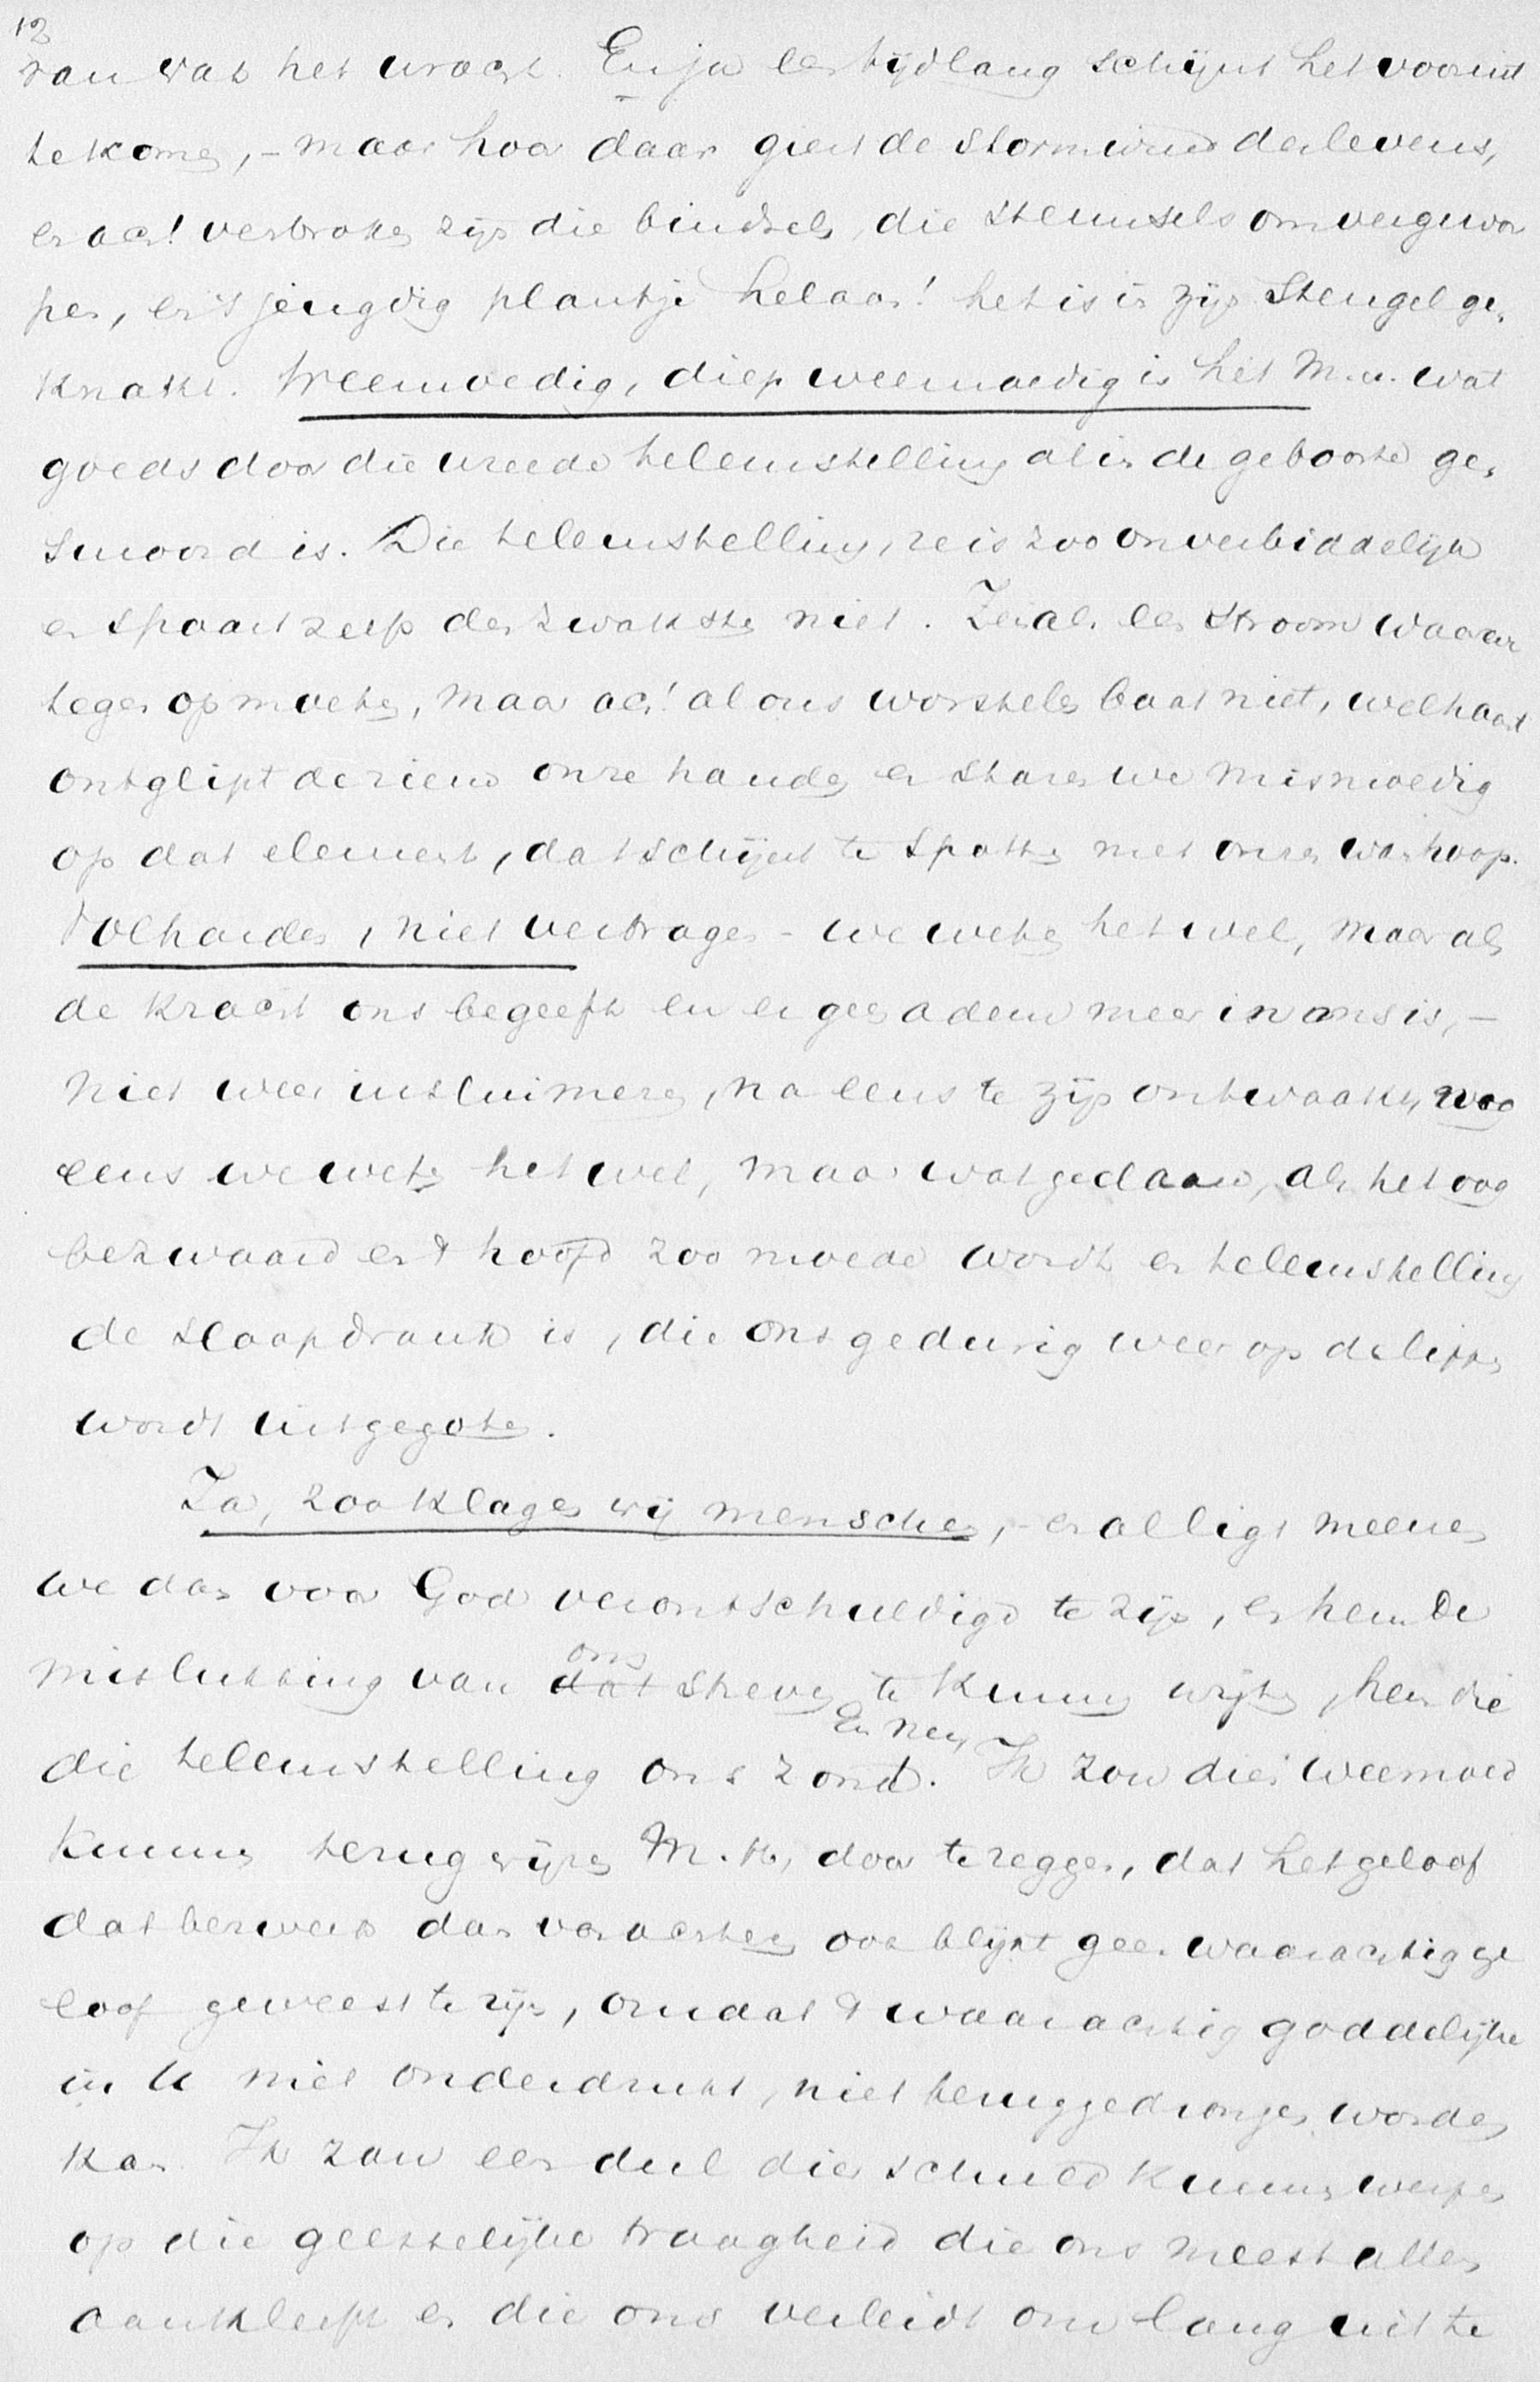 12
van wat het wracht. En ja een tijdlang schijnt het vooruit
te komen, - maar hoor daar giert de stormwind des levens,
en ach! verbroken zijn die bindsels, die steunsels omvergewor
pen, en 't jeugdig plantje helaas! het is in zijn stengel ge,
knakt. Weemoedig, diep weemoedig is het M. v. wat
goeds door die wreede teleurstelling al in de geboorte ge,
smoord is. Die teleurstelling, ze is zoo onverbiddelijk
en spaart zelfs den zwakste niet. Ze is als een stroom waaraan
tegen op moeten, maar ach! al ons worstelen baat niet, welhaast
ontglipt de riem onze handen en staren we mismoedig
op dat element, dat schijnt te spotten met onze wanhoop.
Volharden, niet vertragen - we weten het wel, maar als
de kracht ons begeeft en er geen adem meer in ons is, -
niet weer insluimeren, na eens te zijn ontwaakt, nog
eens we weten het wel, maar wat gedaan, als het oog
bezwaard en 't hoofd zoo moede wordt en teleurstelling
de slaapdrank is, die ons gedurig weer op de lippen
wordt uitgegoten.
Ja, zoo klagen wij menschen, - en al ligt meenen
we dan voor God verontschuldigd te zijn, en hem de
mislukking van dat ons streven te kunnen wijten, hem die
die teleurstelling ons zond. En nu, Ik zou dien weemoed
kunnen terugwijzen M. H., door te zeggen, dat het geloof
dat bezweek dan van achteren ook blijkt geen waarachtig ge
loof geweest te zijn, omdat 't waarachtig goddelijke
in U niet onderdrukt, niet teruggedrongen worden
kan. Ik zou een deel dier schuld kunnen werpen
op die geestelijke traagheid die ons meest allen
aankleeft en die ons verleidt om lang uit te